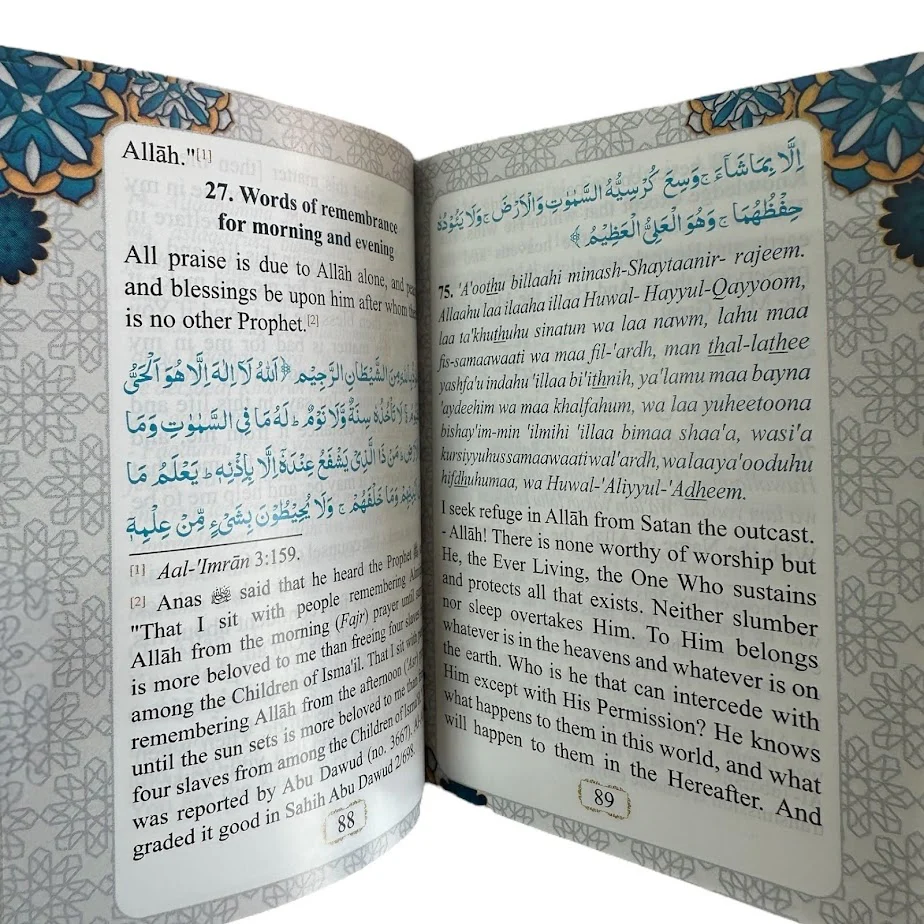 Allāh."[1]
27. Words of remembrance
for morning and evening
All praise is due to Allāh alone, and
and blessings be upon him after whom
is no other Prophet.[2]
مِنَ الشَّيْطَانِ الرَّجِيْمِ ﴿اَللّٰهُ لَآ اِلٰهَ اِلَّا هُوَ اَلْحَيُّ
لَا تَأْخُذُهٗ سِنَةٌ وَّلَا نَوْمٌ ؕ لَهٗ مَا فِى السَّمٰوٰتِ وَمَا
مَنْ ذَا الَّذِىْ يَشْفَعُ عِنْدَهٗٓ اِلَّا بِاِذْنِهٖ ؕ يَعْلَمُ مَا
وَمَا خَلْفَهُمْ ۚ وَلَا يُحِيْطُوْنَ بِشَىْءٍ مِّنْ عِلْمِهٖٓ
[1] Aal-'Imrān 3:159.
[2] Anas ﷺ said that he heard the Prophet
"That I sit with people remembering
Allāh from the morning (Fajr) prayer until
is more beloved to me than freeing four
among the Children of Isma'il. That I sit with
remembering Allāh from the afternoon ('Asr)
until the sun sets is more beloved to me than
four slaves from among the Children of
was reported by Abu Dawud (no. 3667).
graded it good in Sahih Abu Dawud 2/698.
88
اِلَّا بِمَا شَآءَ ۚ وَسِعَ كُرْسِيُّهُ السَّمٰوٰتِ وَالْاَرْضَ ۚ وَلَا يَئُوْدُهٗ
حِفْظُهُمَا ۚ وَهُوَ الْعَلِىُّ الْعَظِيْمُ ﴾
75. 'A'oothu billaahi minash-Shaytaanir- rajeem.
Allaahu laa ilaaha illaa Huwal- Hayyul-Qayyoom,
laa ta'khuthuhu sinatun wa laa nawm, lahu maa
fis-samaawaati wa maa fil-'ardh, man thal-lathee
yashfa'u indahu 'illaa bi'ithnih, ya'lamu maa bayna
'aydeehim wa maa khalfahum, wa laa yuheetoona
bishay'im-min 'ilmihi 'illaa bimaa shaa'a, wasi'a
kursiyyuhus samaawaati wal'ardh, wa laa ya'ooduhu
hifdhuhumaa, wa Huwal-'Aliyyul-'Adheem.
I seek refuge in Allāh from Satan the outcast.
- Allāh! There is none worthy of worship but
He, the Ever Living, the One Who sustains
and protects all that exists. Neither slumber
nor sleep overtakes Him. To Him belongs
whatever is in the heavens and whatever is on
the earth. Who is he that can intercede with
Him except with His Permission? He knows
what happens to them in this world, and what
will happen to them in the Hereafter. And
89